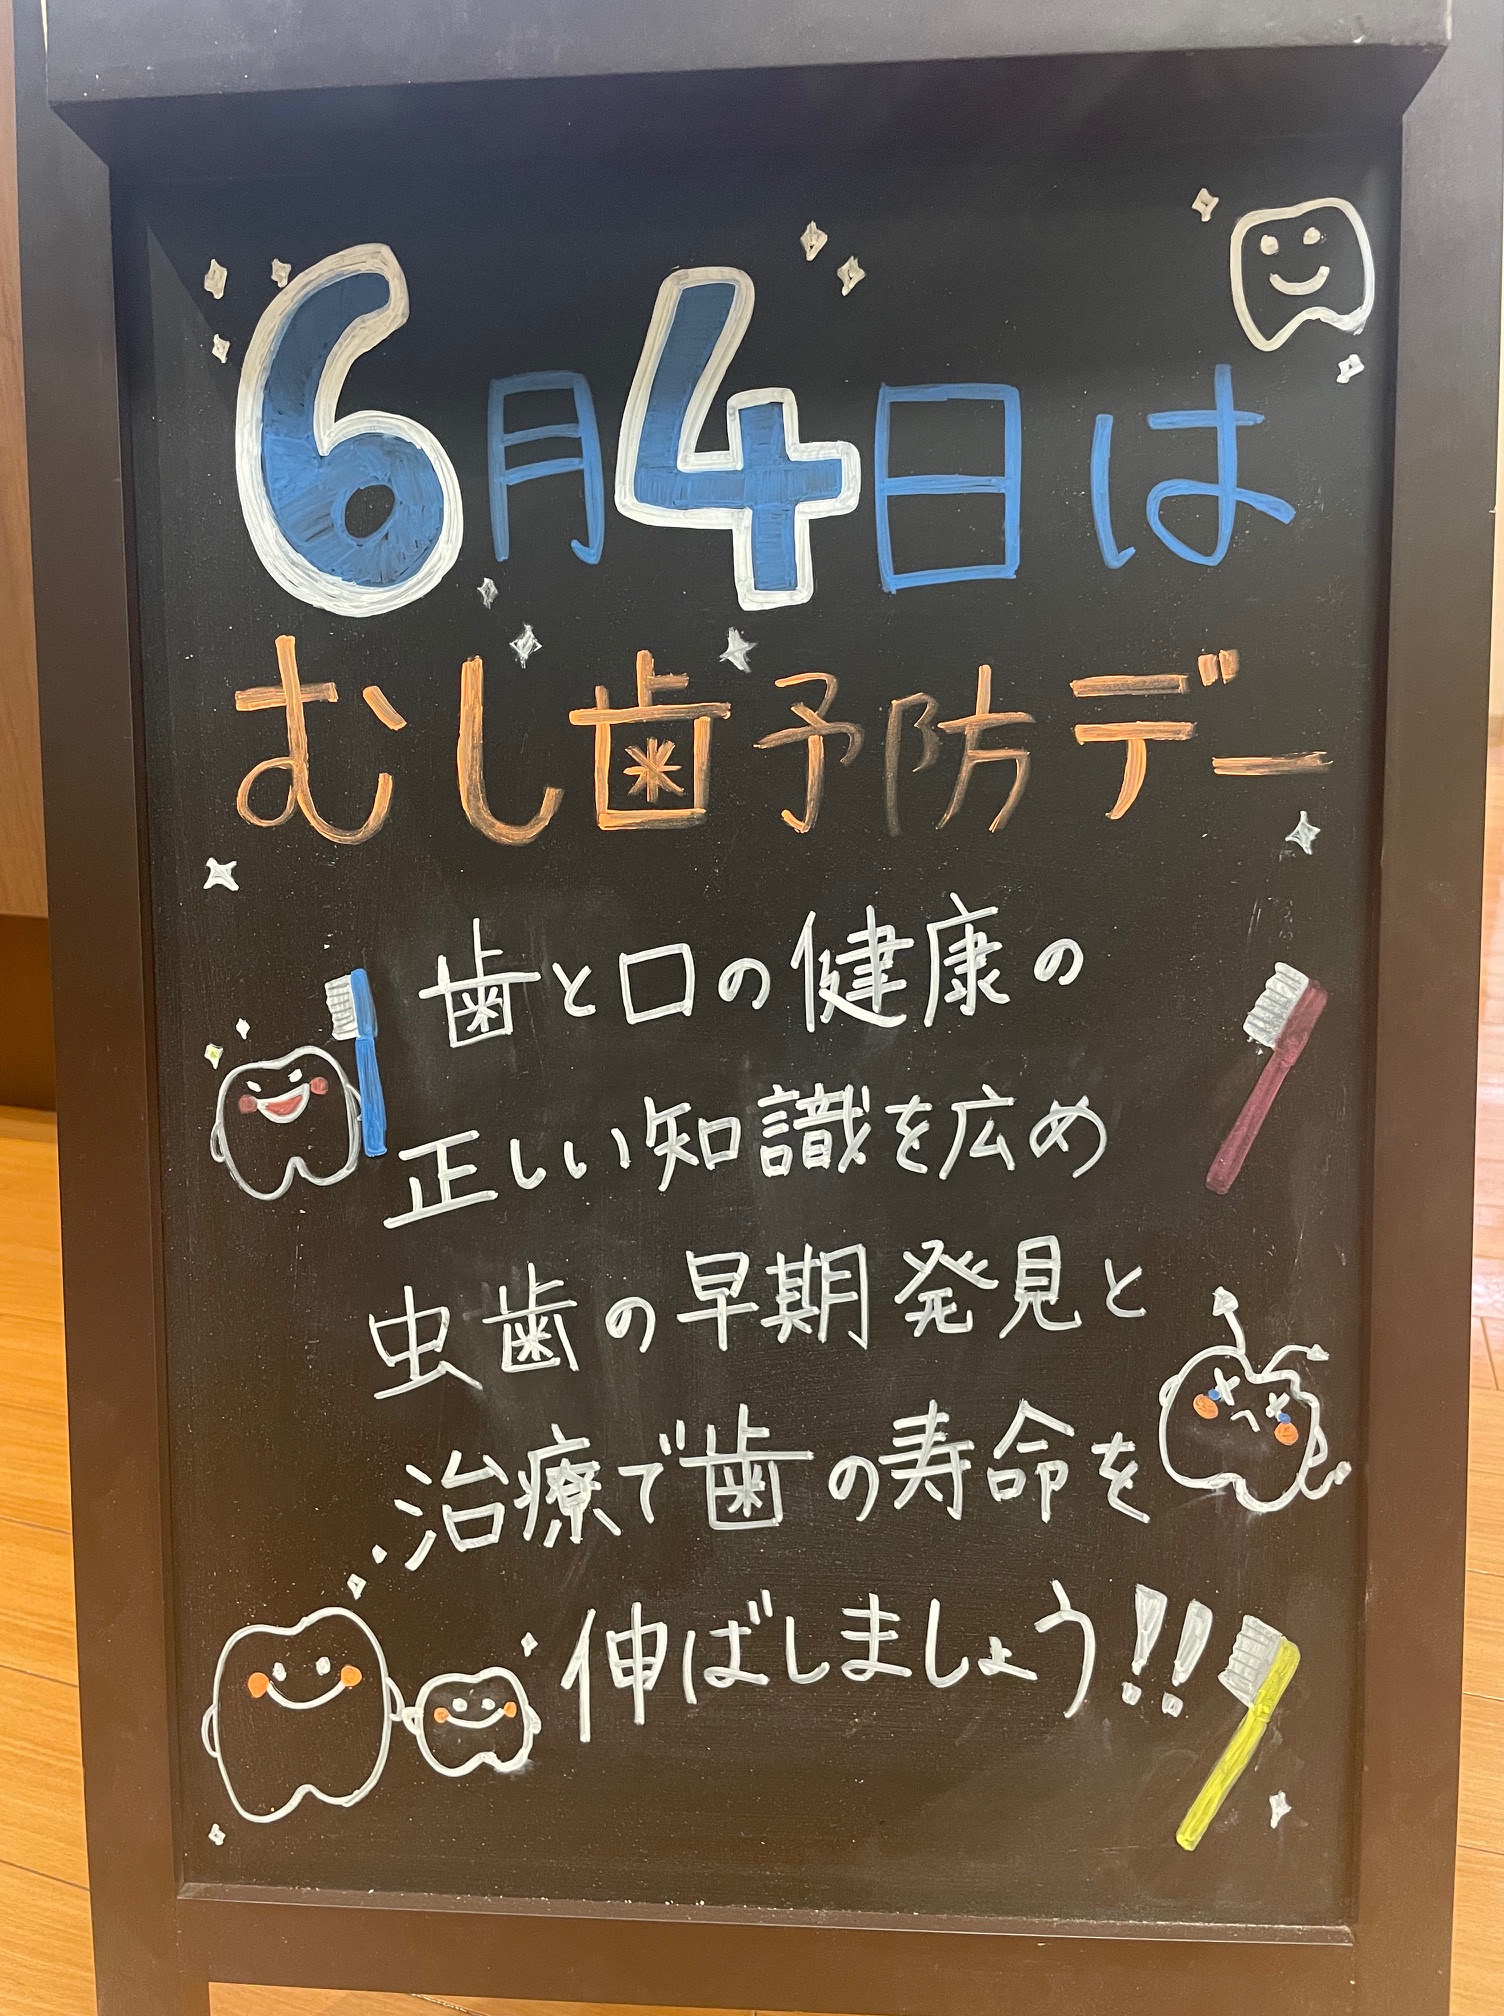 6月4日は
むし歯予防デー
歯と口の健康の
正しい知識を広め
虫歯の早期発見と
治療で歯の寿命を
伸ばしましょう!!